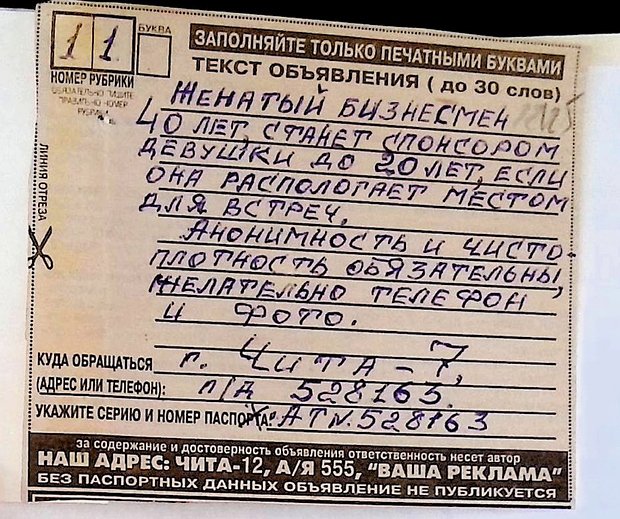 1 1
БУКВА
НОМЕР РУБРИКИ
ОБЯЗАТЕЛЬНО ПИШИТЕ
ПРАВИЛЬНО НОМЕР
РУБРИКИ
ЗАПОЛНЯЙТЕ ТОЛЬКО ПЕЧАТНЫМИ БУКВАМИ
ТЕКСТ ОБЪЯВЛЕНИЯ ( до 30 слов)
ЖЕНАТЫЙ БИЗНЕСМЕН
40 ЛЕТ, СТАНЕТ СПОНСОРОМ
ДЕВУШКИ ДО 20 ЛЕТ, ЕСЛИ
ОНА РАСПОЛОГАЕТ МЕСТОМ
ДЛЯ ВСТРЕЧ.
АНОНИМНОСТЬ И ЧИСТО-
ПЛОТНОСТЬ ОБЯЗАТЕЛЬНЫ,
ЖЕЛАТЕЛЬНО ТЕЛЕФОН
И ФОТО.
ЛИНИЯ ОТРЕЗА
КУДА ОБРАЩАТЬСЯ г. ЧИТА-7,
(АДРЕС ИЛИ ТЕЛЕФОН): П/Д 528163.
УКАЖИТЕ СЕРИЮ И НОМЕР ПАСПОРТА: АТ №. 528163
за содержание и достоверность объявления ответственность несет автор
НАШ АДРЕС: ЧИТА-12, А/Я 555, "ВАША РЕКЛАМА"
БЕЗ ПАСПОРТНЫХ ДАННЫХ ОБЪЯВЛЕНИЕ НЕ ПУБЛИКУЕТСЯ